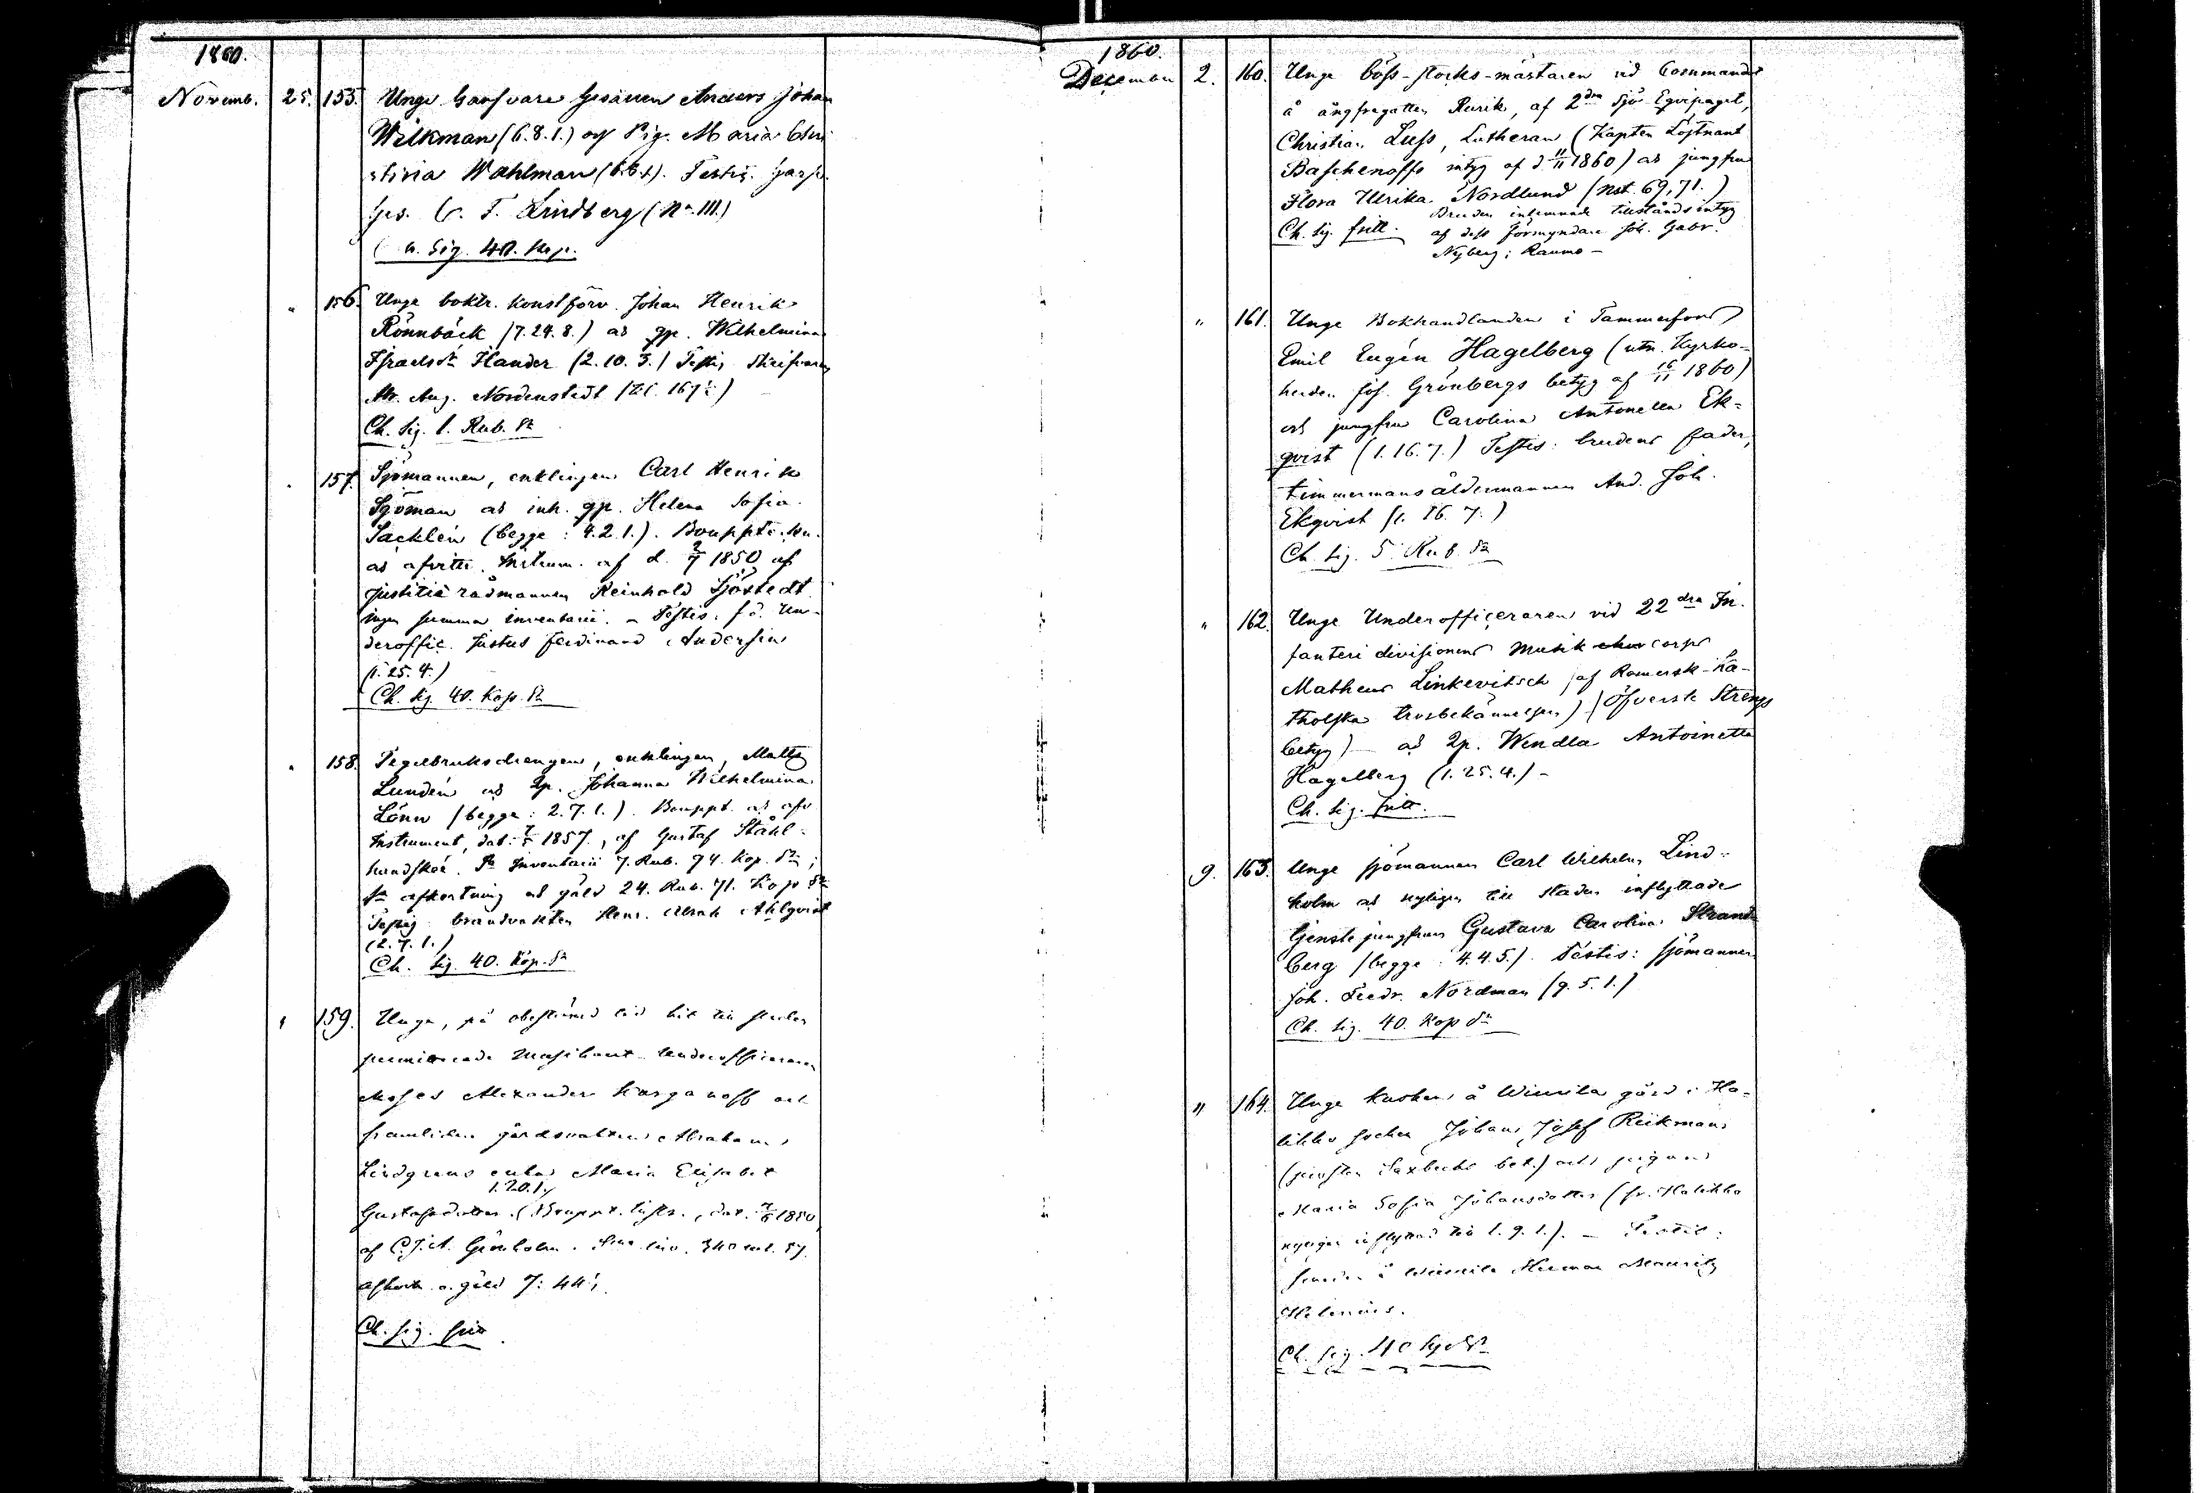 1860.
Novemb. 25. 155. Unge Garfvare Gesällen Anders Johan
Wilkman (6.8.1.) och Pig. Maria Chri
stina Wahlman (6.6.1.). Testis: Garfv.
Ges. C. F. Lindberg (Nr. III.)
Ch. Sig. 40. Kop.
" 156. Unge boktr. konstförv. Johan Henrik
Rönnbäck (7.24.8.) och gp. Wilhelmina
Israelsdr Ilander (2.10.3.) Testis Skrifvaren
Mr. Aug. Nordenstedt (til. 167½)
Ch. Sig. 1. Rub. Sr
" 157. Sjömannen, enklingen Carl Henrik
Sjöman och inh. gp. Helena Sofia
Sacklén (begge: 4.2.1.). Bouppt.
och afvitr. Instrum. af d. 2/7 1850 af
justitiæ rådmannen Reinhold Sjöstedt
ingen summa inventarii. – Testis: f.d. Un-
deroffic. Justus Ferdinand Andersin
(1.25.4.)
Ch. Sig. 40. Kop. Sr
" 158. Tegelbruksdrengen, enklingen, Matts
Lundén och Qp. Johanna Wilhelmina
Lönn (begge: 2.7.1.). Bouppt. och afv
Instrument, dat. 1857, af Gustaf Stål-
handske. Sa Inventarii 7. Rub. 94. Kop. Sr;
Sa afkortning och gäld 24. Rub. 71. Kop Sr
Testis: brandvakten Henr. Abrah Ahlqvist
(2.7.1.)
Ch. Sig. 40. Kop. Sr
" 159. Unge, på obestämd tid hit till staden
permitterade Musikant underofficeraren
Moses Alexander Karganoff och
framlidne gårdsvakten Abraham
Lindgrens enka Maria Elisabet
1.20.1.
Gustafsdotter. (Bouppt. Instr., dat. 1850
af C.J.A. Grönholm. Sma inv. 340 rub. 57.
afkort. o. gäld 7: 44½
Ch. sig. fritt
1860.
December 2. 160. Unge böss-stocks-mästaren vid Commando
å ångfregatten Rurik, af 2dra Sjö Eqvipaget,
Christian Luss, Lutheran (Kapten Löjtnant
Baschenoffs intyg af d. 11/11 1860) och jungfru
Flora Ulrika Nordlund (Nst. 69, 71.)
Bruden inlemnade tillståndsintyg
Ch. Sig. fritt. af dess förmyndare Joh. Gabr.
Nyberg i Raumo –
" 161. Unge Bokhandlanden i Tammerfors
Emil Eugén Hagelberg (utn. Kyrko-
herden Jos. Grönbergs betyg af 16/11 1860)
och jungfru Carolina Antonetta Ek-
qvist (1.16.7.) Testis: brudens fader,
timmermansåldermannen And. Joh.
Ekqvist (1.16.7.)
Ch. Sig. 5 Rub. Sr
" 162. Unge Underofficeraren vid 22dra In-
fanteri divisionens Musik corps
Matheus Linkevitsch (af Romersk-Ka-
tholska trosbekännelsen) (Öfverste Strengs
betyg) – och Qp. Wendla Antoinetta
Hagelberg (1.25.4.) –
Ch. Sig. fritt.
9. 163. Unge sjömannen Carl Wilhelm Lind-
holm och nyligen till staden inflyttade
tjenste jungfrun Gustava Carolina Strand-
berg (begge: 4.4.5.). Testis: sjömannen
Joh. Fredr. Nordman (9.5.1.)
Ch. Sig. 40. Kop Sr
" 164. Unge kusken å Wiurila gård i Ha-
likko socken Johan Josef Riikman
(prosten Saxbecks bet.) och pigan
Maria Sofia Johansdotter (fr. Halikko
nyligen inflyttad till 1.9.1.). – Testis:
å Wiurila Herman Mauritz
Helenius.
Ch. sig. 40 Kop Sr